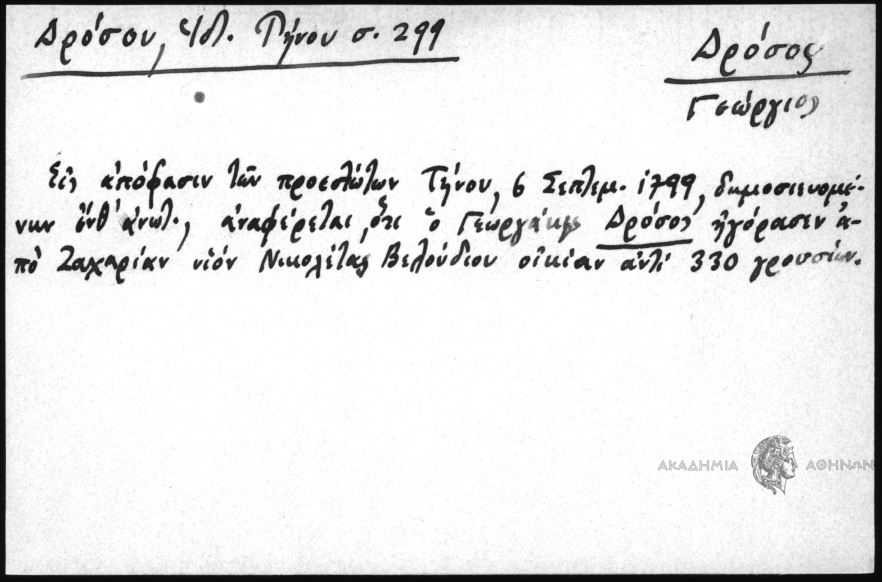 Δρόσου, Ἱστ. Τήνου σ. 299
Δρόσος
Γεώργιος
Εἰς ἀπόφασιν τῶν προεστώτων Τήνου, 6 Σεπτεμ. 1799, δημοσιευομέ-
νην ἔνθ' ἀνωτ., ἀναφέρεται, ὅτι ὁ Γεωργάκης Δρόσος ἠγόρασεν ἀ-
πὸ Ζαχαρίαν υἱόν Νικολέτας Βελούδιου οἰκίαν ἀντὶ 330 γροσίων.
ΑΚΑΔΗΜΙΑ ΑΘΗΝΩΝ